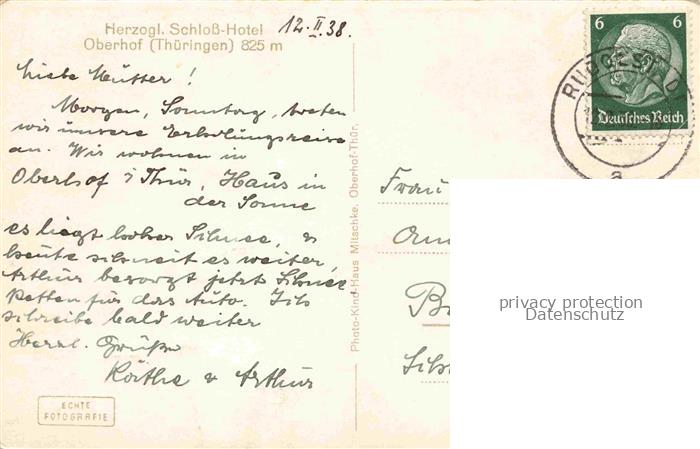 Herzogl. Schloß-Hotel
Oberhof (Thüringen) 825 m
12.II.38.
6 6
Deutsches Reich
RUDOLSTAD
a
Liebe Mutter!
Morgen, Sonntag, treten
wir unsere Erholungsreise
an. Wir wohnen in
Oberhof i Thür, Haus in
der Sonne
es liegt hoher Schnee, u
heute schneit es weiter,
Arthur besorgt jetzt Schnee
Ketten für das Auto. Ich
schreibe bald weiter
Herzl. Grüße
Käthe u Arthur
ECHTE
FOTOGRAFIE
Photo-Kind-Haus Mitschke, Oberhof-Thür.
Frau
privacy protection
Datenschutz